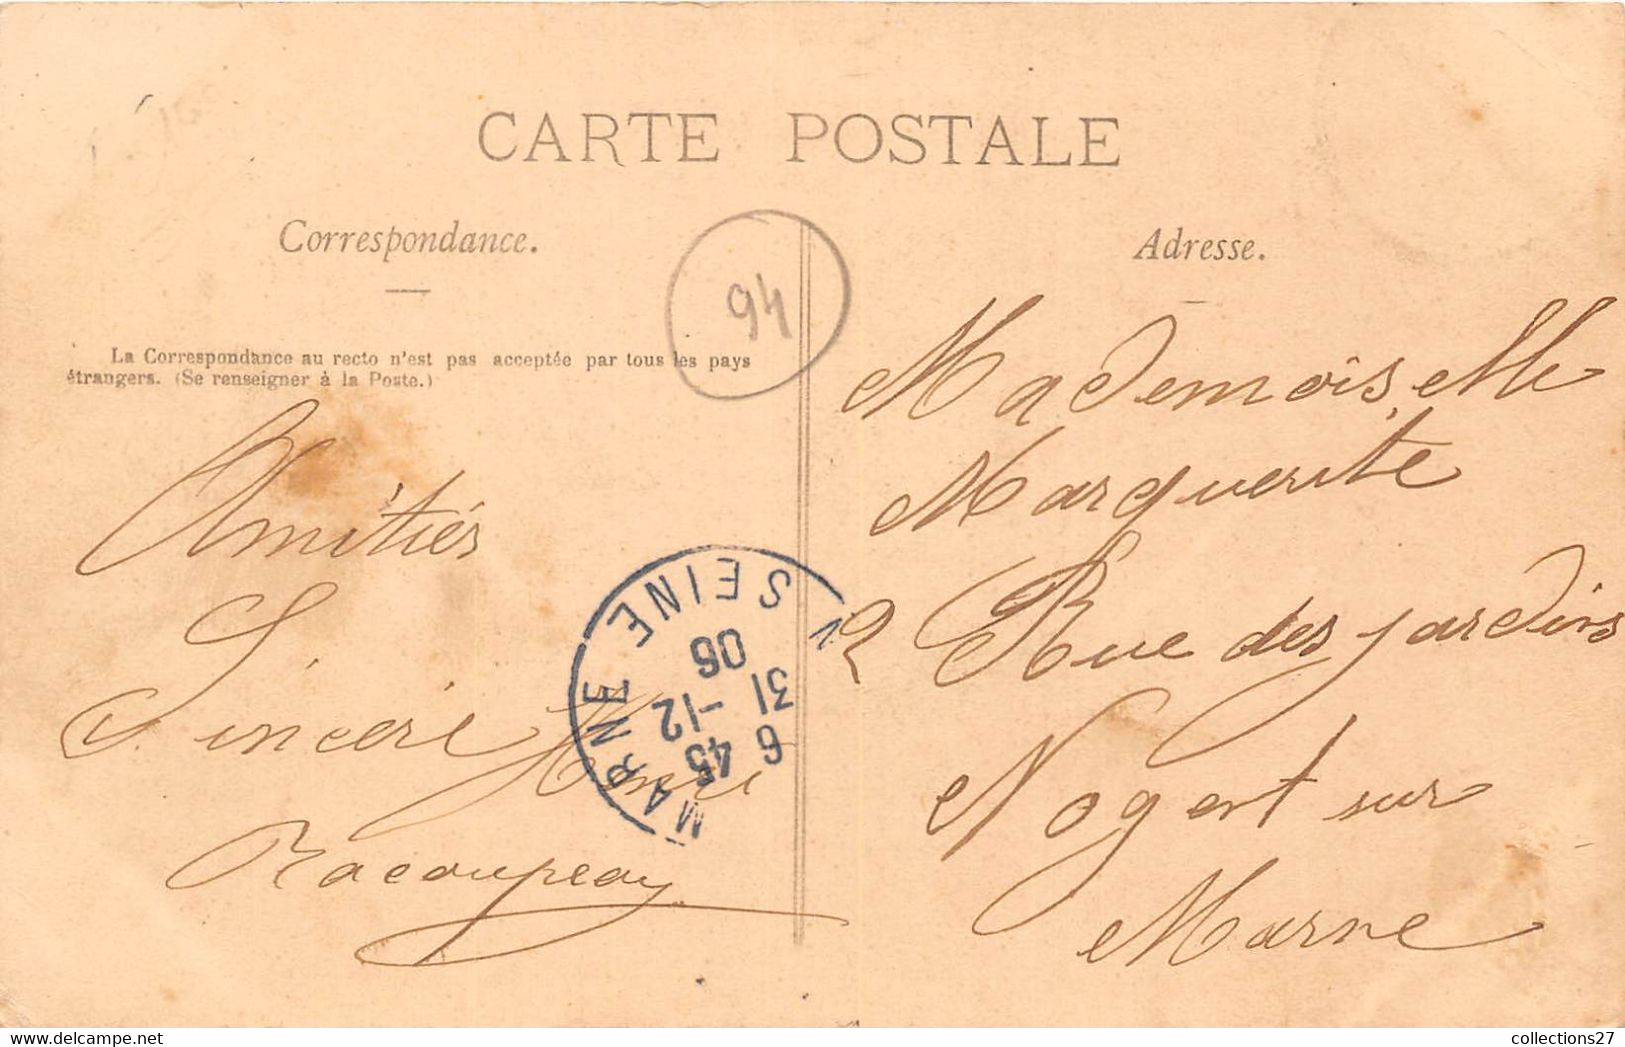 CARTE POSTALE
Correspondance.
94
La Correspondance au recto n'est pas acceptée par tous les pays
étrangers. (Se renseigner à la Poste.)
Amitiés
Sincère
Henri
Adresse.
Mademoiselle
Marguerite
2 Rue des jardins
Nogent sur
Marne
SEINE
MARNE
6 45
31 -12
06
collections27